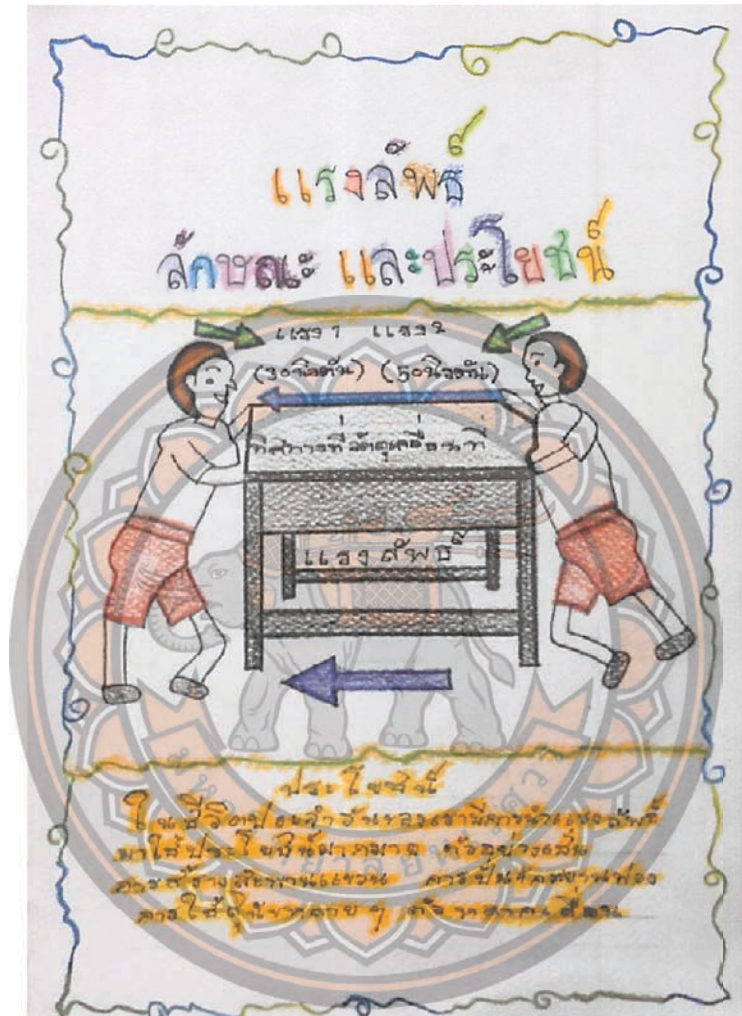 แรงลัพธ์
ลักษณะ และประโยชน์
แรง1 แรง2
(30นิวตัน) (50นิวตัน)
ทิศทางที่วัตถุเคลื่อนที่
แรงลัพธ์
ประโยชน์
ในชีวิตประจำวันของเรามีการนำแรงลัพธ์
มาใช้ประโยชน์มากมาย ตัวอย่างเช่น
การสร้างสะพานแขวน การปั่นจักรยาน
การใช้สุนัขหลาย ๆ ตัว ลากเลื่อน